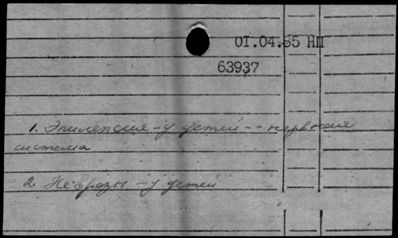 01.04.85 НШ
63937
1. Эпилепсия - у детей -- нервная
система
2 Неврозы - у детей